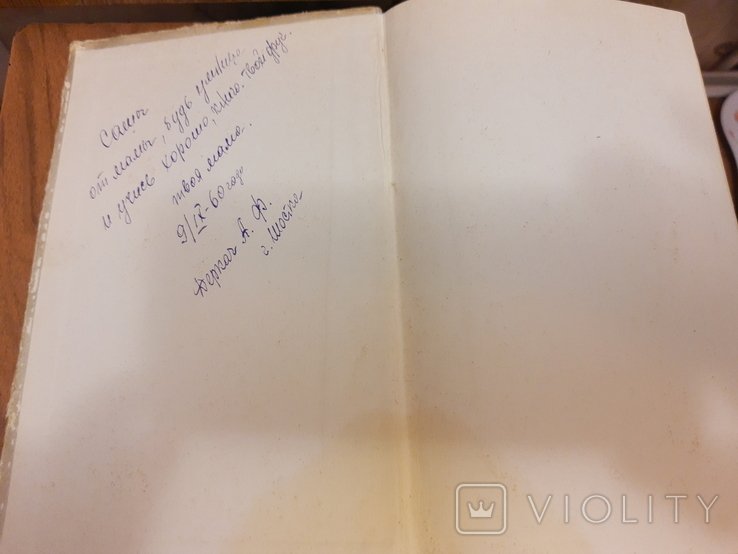 Саше
от мамы, будь умница
и учись хорошо, книга. Твой друг.
твоя мама.
9/IX-60 года
Деркач А. Ф.
г. Шостка
VIOLITY